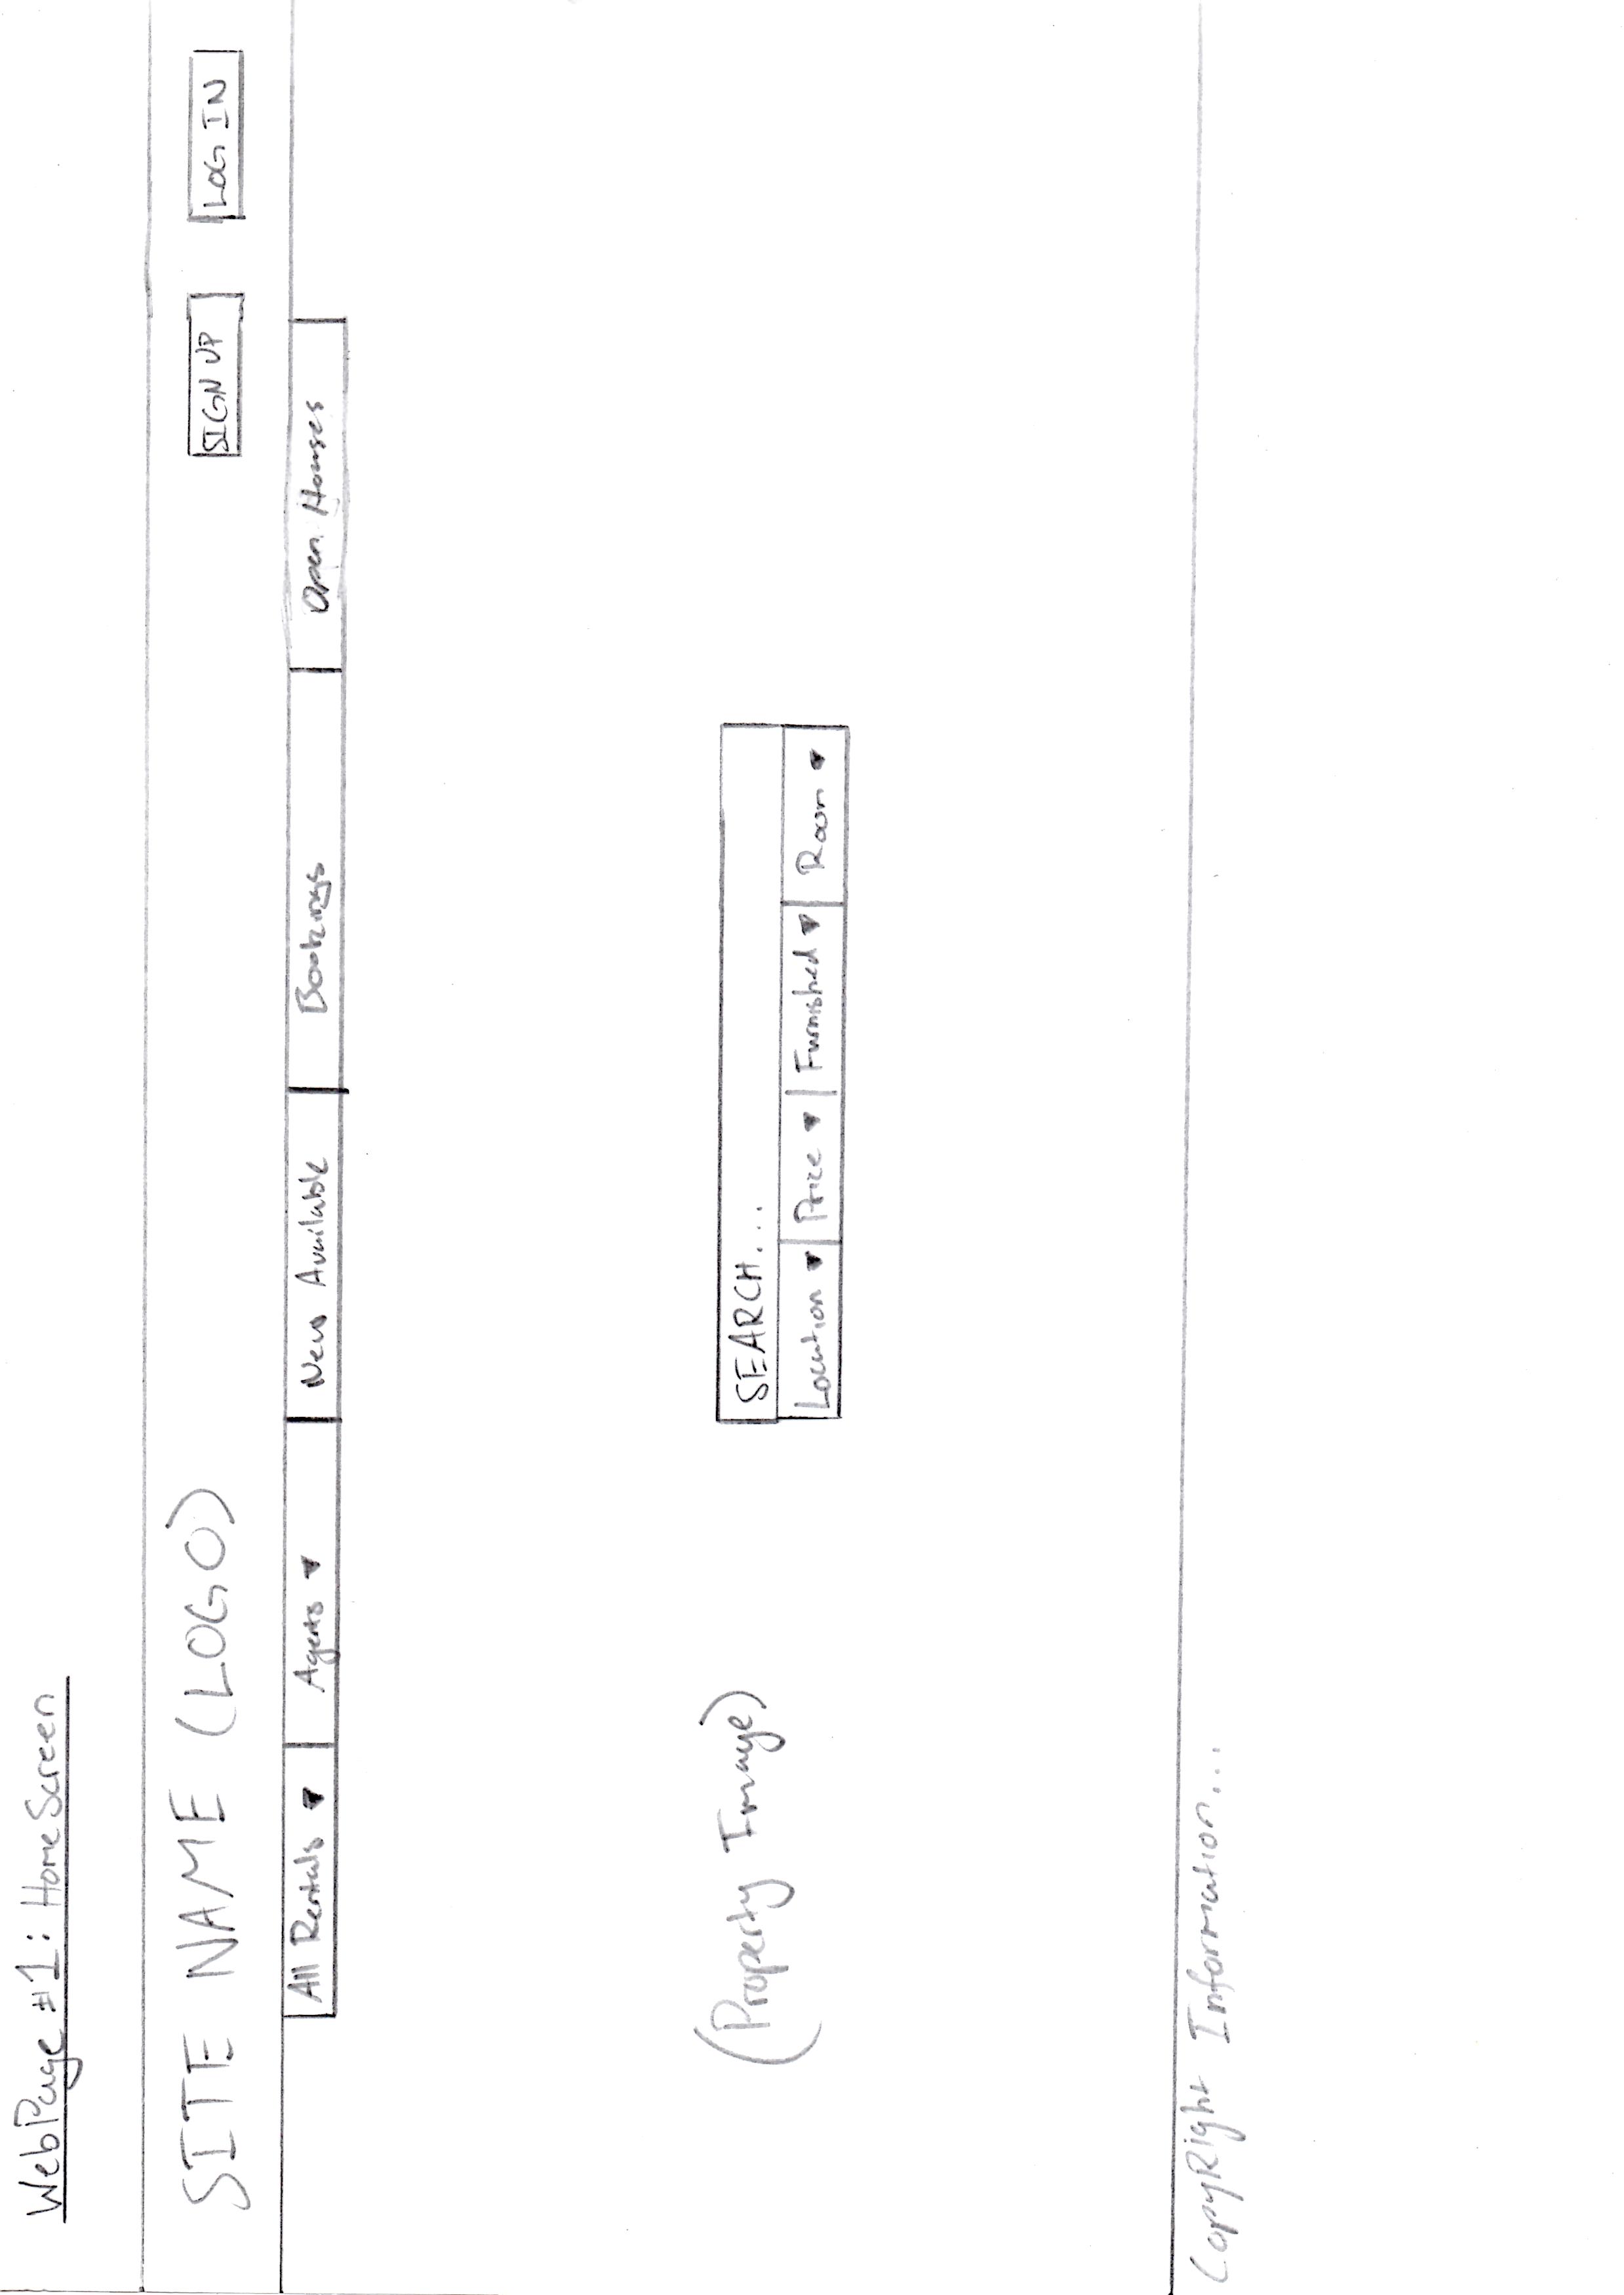 WebPage #1: HomeScreen
SITE NAME (LOGO)
SIGN UP
LOG IN
All Rentals ▼
Agents ▼
New Available
Bookings
Open Houses
SEARCH....
Location ▼
Price ▼
Furnished ▼
Room ▼
(Property Image)
CopyRight Information...